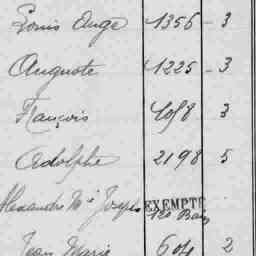 Louis Ange 1356 - 3
Auguste 1225 - 3
François 1058 3
Adolphe 2198 5
Alexandre Mie Joseph EXEMPTÉ
120 Bon
Jean Marie 604 2